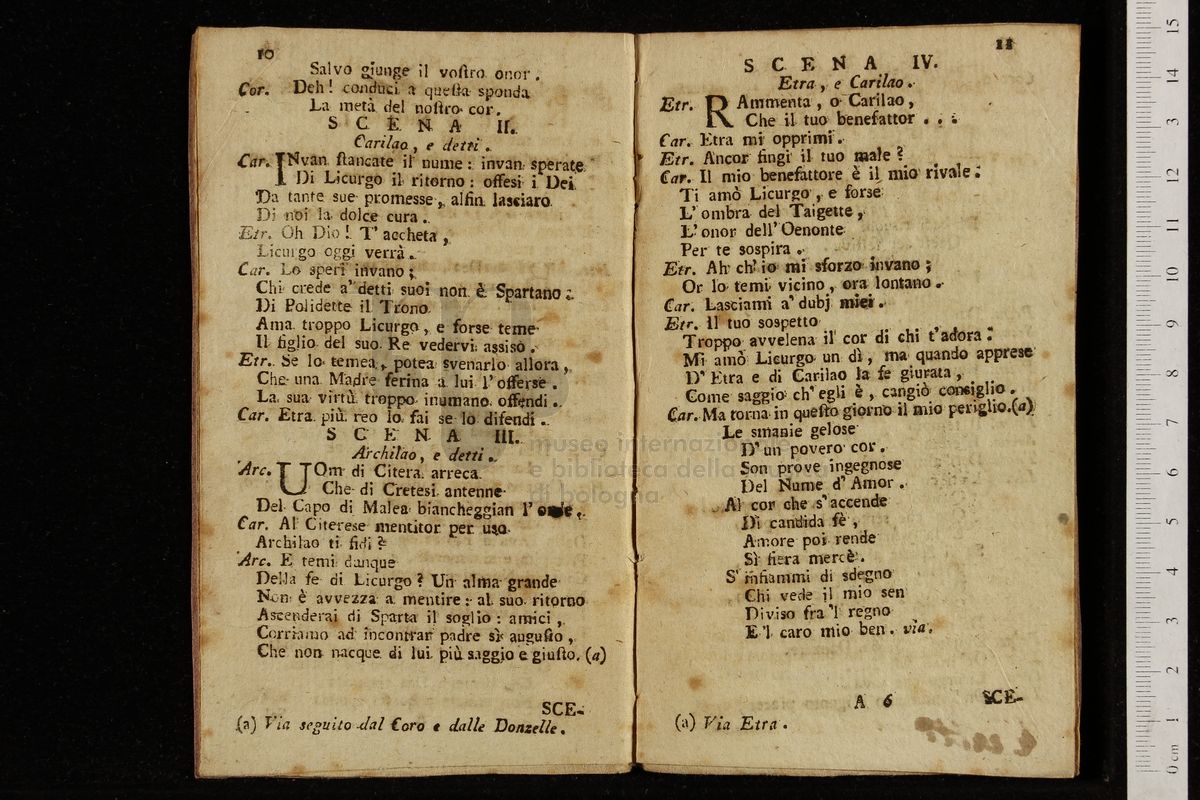 10
Salvo giunge il voſtro onor.
Cor. Deh! conduci a queſta sponda
La metà del noſtro cor.
SCENA II.
Carilao, e detti.
Car. INvan ſtancate il nume: invan sperate
Di Licurgo il ritorno: offesi i Dei
Da tante sue promesse, alfin lasciaro
Di noi la dolce cura.
Etr. Oh Dio! T' accheta,
Licurgo oggi verrà.
Car. Lo speri invano;
Chi crede a' detti suoi non è Spartano:
Di Polidette il Trono
Ama troppo Licurgo, e forse teme
Il figlio del suo Re vedervi assiso.
Etr. Se lo temea, potea svenarlo allora,
Che una Madre ferina a lui l' offerse.
La sua virtù troppo inumano offendi.
Car. Etra più reo lo fai se lo difendi.
SCENA III.
Archilao, e detti.
Arc. UOm di Citera arreca
Che di Cretesi antenne
Del Capo di Malea biancheggian l' onde.
Car. Al Citerese mentitor per uso
Archilao ti fidi?
Arc. E temi dunque
Della fe di Licurgo? Un alma grande
Non è avvezza a mentire: al suo ritorno
Ascenderai di Sparta il soglio: amici,
Corriamo ad incontrar padre sì auguſto,
Che non nacque di lui più saggio e giuſto. (a)
SCE-
(a) Via seguito dal Coro e dalle Donzelle.
11
SCENA IV.
Etra, e Carilao.
Etr. RAmmenta, o Carilao,
Che il tuo benefattor . . .
Car. Etra mi opprimi.
Etr. Ancor fingi il tuo male?
Car. Il mio benefattore è il mio rivale:
Ti amò Licurgo, e forse
L' ombra del Taigette,
L' onor dell' Oenonte
Per te sospira.
Etr. Ah ch' io mi sforzo invano;
Or lo temi vicino, ora lontano.
Car. Lasciami a' dubj miei.
Etr. Il tuo sospetto
Troppo avvelena il cor di chi t'adora:
Mi amò Licurgo un dì, ma quando apprese
D' Etra e di Carilao la fe giurata,
Come saggio ch' egli è, cangiò consiglio.
Car. Ma torna in queſto giorno il mio periglio.(a)
Le smanie gelose
D' un povero cor.
Son prove ingegnose
Del Nume d' Amor.
Al cor che s' accende
Di candida fè,
Amore poi rende
Sì fiera mercè.
S' infiammi di sdegno
Chi vede il mio sen
Diviso fra 'l regno
E 'l caro mio ben. via.
A 6 SCE-
(a) Via Etra.
museo internazionale
e biblioteca della musica
di bologna
15
14
3
12
11
10
9
8
7
6
5
4
3
2
1
0 cm